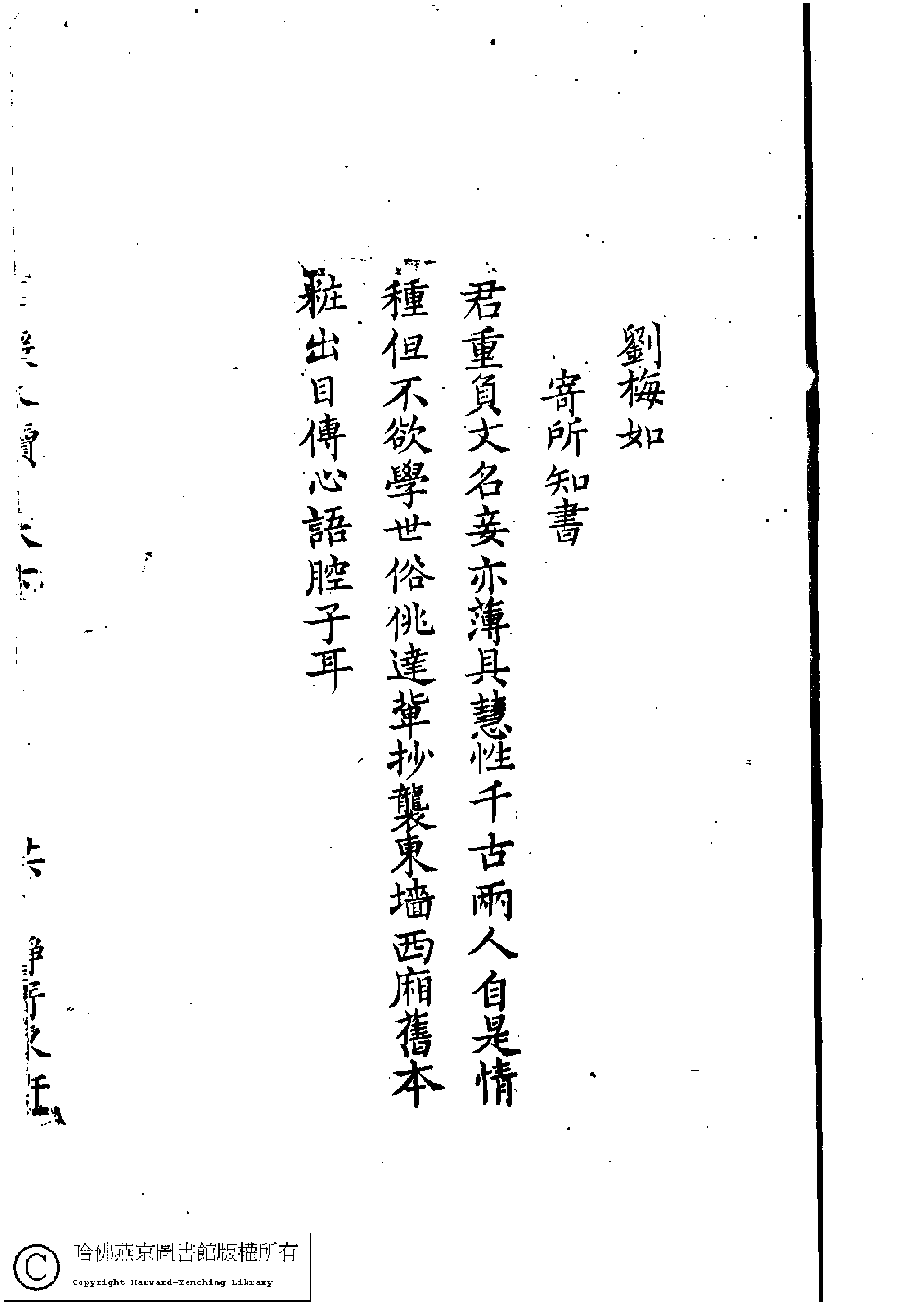 劉梅如
寄所知書
君重負文名妾亦薄具慧性千古兩人自是情
種但不欲學世俗佻達軰抄襲東墻西廂舊本
粧出目傳心語腔子耳
哈佛燕京圖書館版權所有
Copyright Harvard-Yenching Library